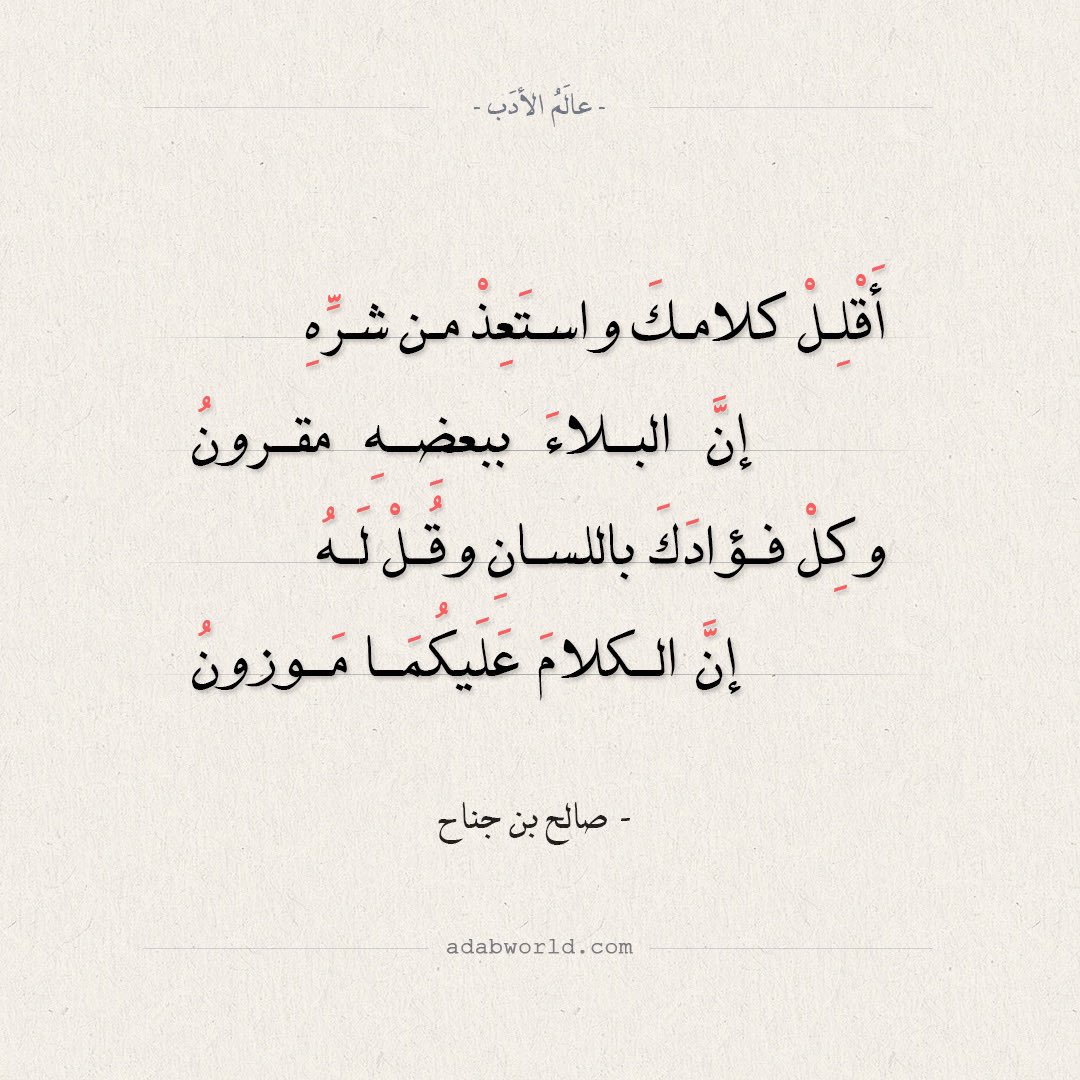 - عالَمُ الأدَب -
أَقْلِلْ كلامكَ و استَعِذْ من شرِّهِ
إنَّ البلاءَ ببعضهِ مقرونُ
و كِلْ فؤادَكَ باللسانِ و قَُلْ لَهُ
إنَّ الكلامَ عَلَيكُمَا مَوزونُ
- صالح بن جناح
adabworld.com